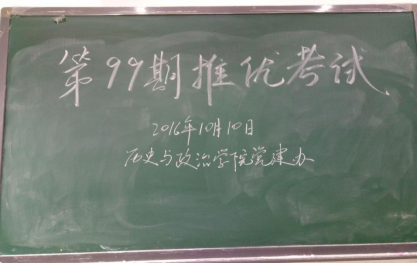 第99期推优考试
2016年10月10日
历史与政治学院党建办